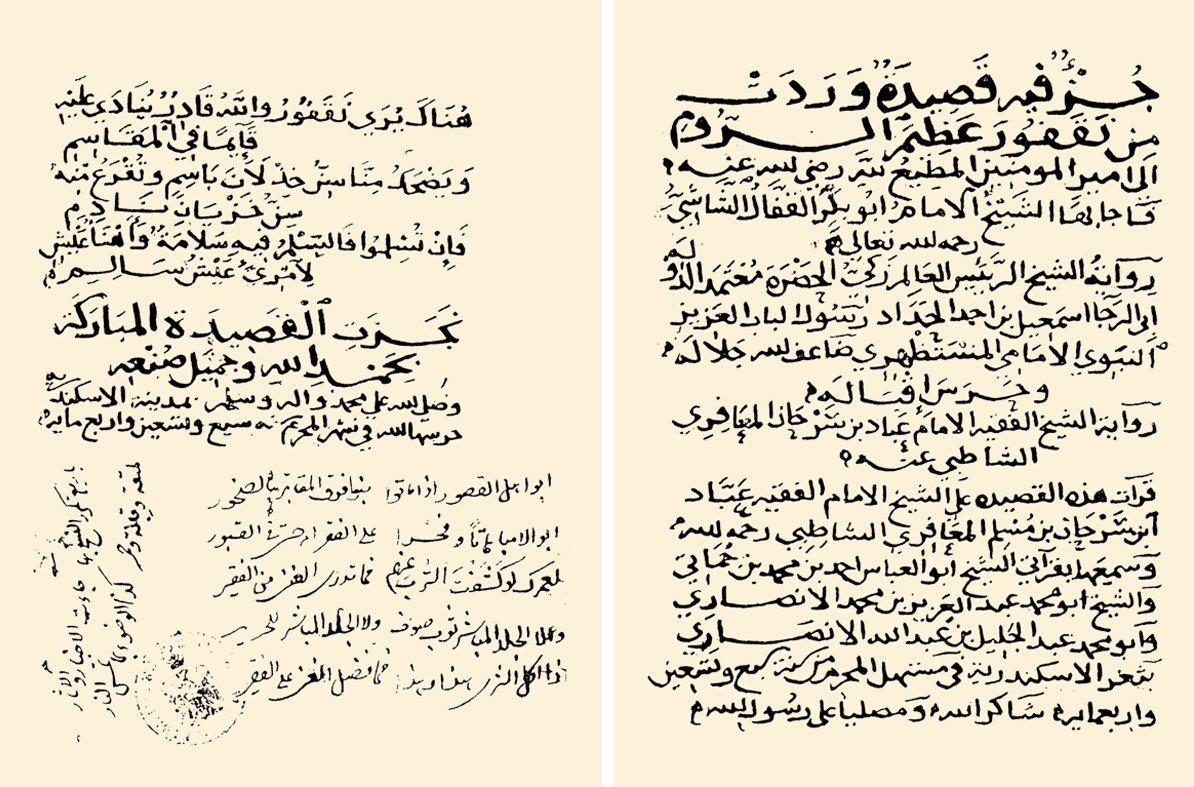 جُزْءٌ فيه قَصِيدَةٌ وَرَدَتْ
مِن نَقفُورَ عَظِيمِ الــرُّومِ
الى امير المومنين المطيع لله رضي الله عنه
فاجابها الشيخ الامام ابو بكر القفال الشاشي
رحمه الله تعالى
رواية الشيخ الرئيس العالم زكي الحضرة معتمد الدولة
ابي الرجا اسمعيل بن احمد الحداد رسول الباب العزيز
النبوي الامامي المستظهري ضاعف الله جلاله
وحرس اقباله
رواية الشيخ الفقيه الامام عباد بن سرحان المعافري
الشاطبي عنه
قرات هذه القصيده على الشيخ الامام الفقيه عباد
ابن سرحان بن مسلم المعافري الشاطبي رحمه الله
وسمعها بقراتي الشيخ ابو العباس احمد بن محمد بن
والشيخ ابو محمد عبد العزيز بن محمد الانصاري
وابو محمد عبد الجليل بن عبد الله الانصاري
بثغر الاسكندرية في مستهل المحرم من سنة سبع وتسعين
واربعمايه شاكرا لله ومصليا على رسول الله
هُنَاكَ يُرَى نَقفُورُ واللهُ قَادِرٌ يُنَادَى عَلَيْهِ
قَايِمًا في الْمَقَاسِمِ
وَيَضْحَكُ مِنَّا سِنُّ جَذْلَانَ بَاسِمٍ وَتُقْرَعُ مِنْهُ
سِنُّ خَزْيَانَ نَادِمِ
فَإِنْ تُسْلِمُوا فَالسِّلْمُ فِيهِ سَلَامَةٌ وَأَهْنَأُ عَيْشٍ
لِامْرِئٍ عَيْشُ سَالِمِ
نَجَزَتِ الْقَصِيدَةُ المُبَارَكَة
بِحَمْدِ اللهِ وجَمِيلِ صُنْعِهِ
وصلى الله على محمد واله وسلم بمدينة الاسكندريه
حرسها الله في شهر المحرم سنه سبع وتسعين واربع مايه
ابوا اهل القصور اذا ماتوا بنوا فوق المقابر بالصخور
ابوا الا مباهاتا وفخرا على الفقرا حتى في القبور
لعمرك لو كشفت الترب عنهم فما تدري الغني من الفقير
ولا الجلد المباشر ثوب صوف ولا الجلد المباشر للحرير
اذا اكل الثرى هذا وهذا فما فضل الغني على الفقير